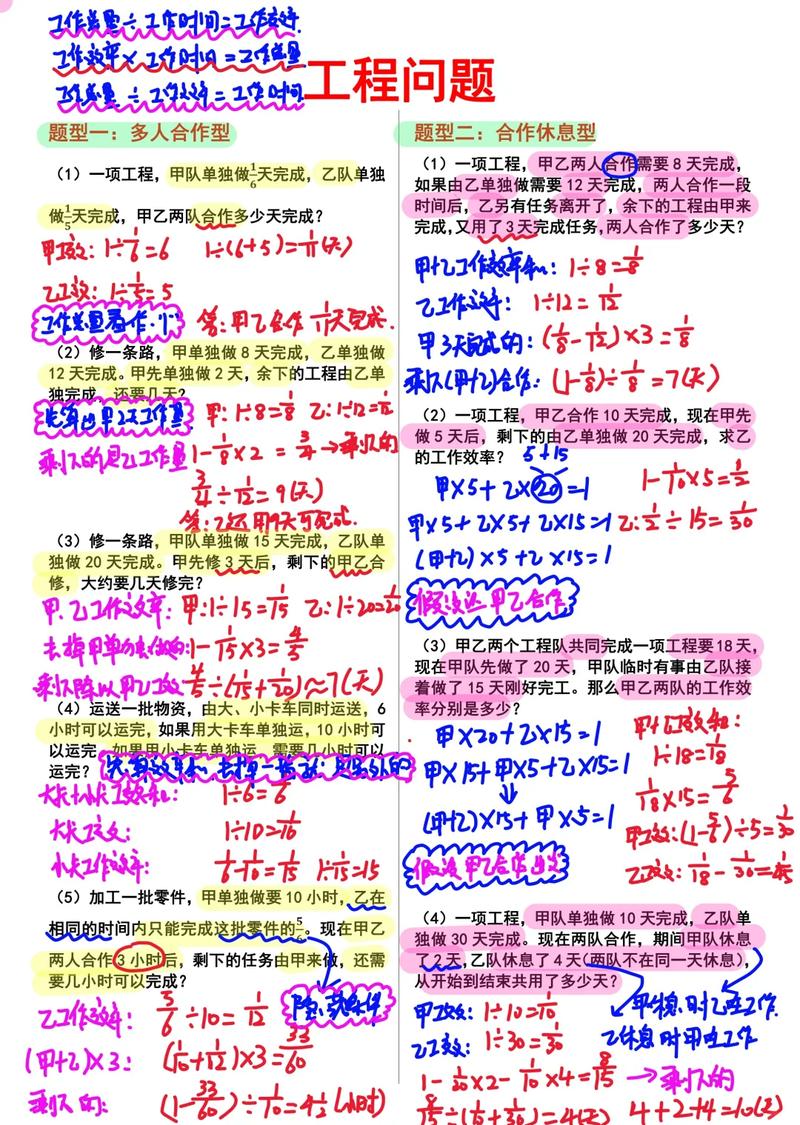 工作总量÷工作时间=工作效率
工作效率×工作时间=工作总量
工作总量÷工作效率=工作时间
工程问题
题型一：多人合作型
（1）一项工程，甲队单独做1/6天完成，乙队单独
做1/5天完成，甲乙两队合作多少天完成？
甲工效：1÷1/6=6 1÷(6+5)=1/11(天)
乙工效：1÷1/5=5
工作总量看作"1" 答：甲乙合作1/11天完成.
（2）修一条路，甲单独做8天完成，乙单独做
12天完成。甲先单独做2天，余下的工程由乙单
独完成，还要几天？
先算出甲2天工作量 甲：1÷8=1/8 乙：1÷12=1/12
剩下的是乙工作量 1-1/8×2=3/4→剩下的
3/4÷1/12=9(天)
答：乙还用9天可完成.
（3）修一条路，甲队单独做15天完成，乙队单
独做20天完成。甲先修3天后，剩下的甲乙合
修，大约要几天修完？
甲、乙工作效率：甲：1÷15=1/15 乙：1÷20=1/20
去掉甲单独做的：1-1/15×3=4/5
剩下除以甲乙工效 4/5÷(1/15+1/20)≈7(天)
（4）运送一批物资，由大、小卡车同时运送，6
小时可以运完，如果用大卡车单独运，10小时可
以运完，如果用小卡车单独运，需要几小时可以
运完？
大卡+小卡工效和：1÷6=1/6
大卡工效：1÷10=1/10
小卡工作效率：1/6-1/10=1/15 1÷1/15=15
（5）加工一批零件，甲单独做要10小时，乙在
相同的时间内只能完成这批零件的5/6。现在甲乙
两人合作3小时后，剩下的任务由甲来做，还需
要几小时可以完成？
隐藏条件
乙工作效率：5/6÷10=1/12
(甲+乙)×3：(1/10+1/12)×3=33/60
剩下的：(1-33/60)÷1/10=4 1/2(小时)
题型二：合作休息型
（1）一项工程，甲乙两人合作需要8天完成，
如果由乙单独做需要12天完成，两人合作一段
时间后，乙另有任务离开了，余下的工程由甲来
完成，又用了3天完成任务，两人合作了多少天？
甲+乙工作效率和：1÷8=1/8
乙工作效率：1÷12=1/12
甲3天完成的：(1/8-1/12)×3=1/8
剩下(甲+乙)合作：(1-1/8)÷1/8=7(天)
（2）一项工程，甲乙合作10天完成，现在甲先
做5天后，剩下的由乙单独做20天完成，求乙
的工作效率？ 5+15
甲×5+乙×20=1 1-1/10×5=1/2
甲×5+乙×5+乙×15=1 乙：1/2÷15=1/30
(甲+乙)×5+乙×15=1
假设达甲乙合作
（3）甲乙两个工程队共同完成一项工程要18天，
现在甲队先做了20天，甲队临时有事由乙队接
着做了15天刚好完工。那么甲乙两队的工作效
率分别是多少？
甲×20+乙×15=1
甲×15+甲×5+乙×15=1
↓
(甲+乙)×15+甲×5=1
甲+乙工效和：
1÷18=1/18
1/18×15=5/6
甲工效：(1-5/6)÷5=1/30
乙工效：1/18-1/30=1/45
（4）一项工程，甲队单独做10天完成，乙队单
独做30天完成。现在两队合作，期间甲队休息
了2天，乙队休息了4天（两队不在同一天休息），
从开始到结束共用了多少天？
甲工效：1÷10=1/10 甲休息时乙在工作.
乙工效：1÷30=1/30 乙休息时甲在工作
1-1/30×2-1/10×4=8/15→剩下的
8/15÷(1/10+1/30)=4(天) 4+2+4=10(天)